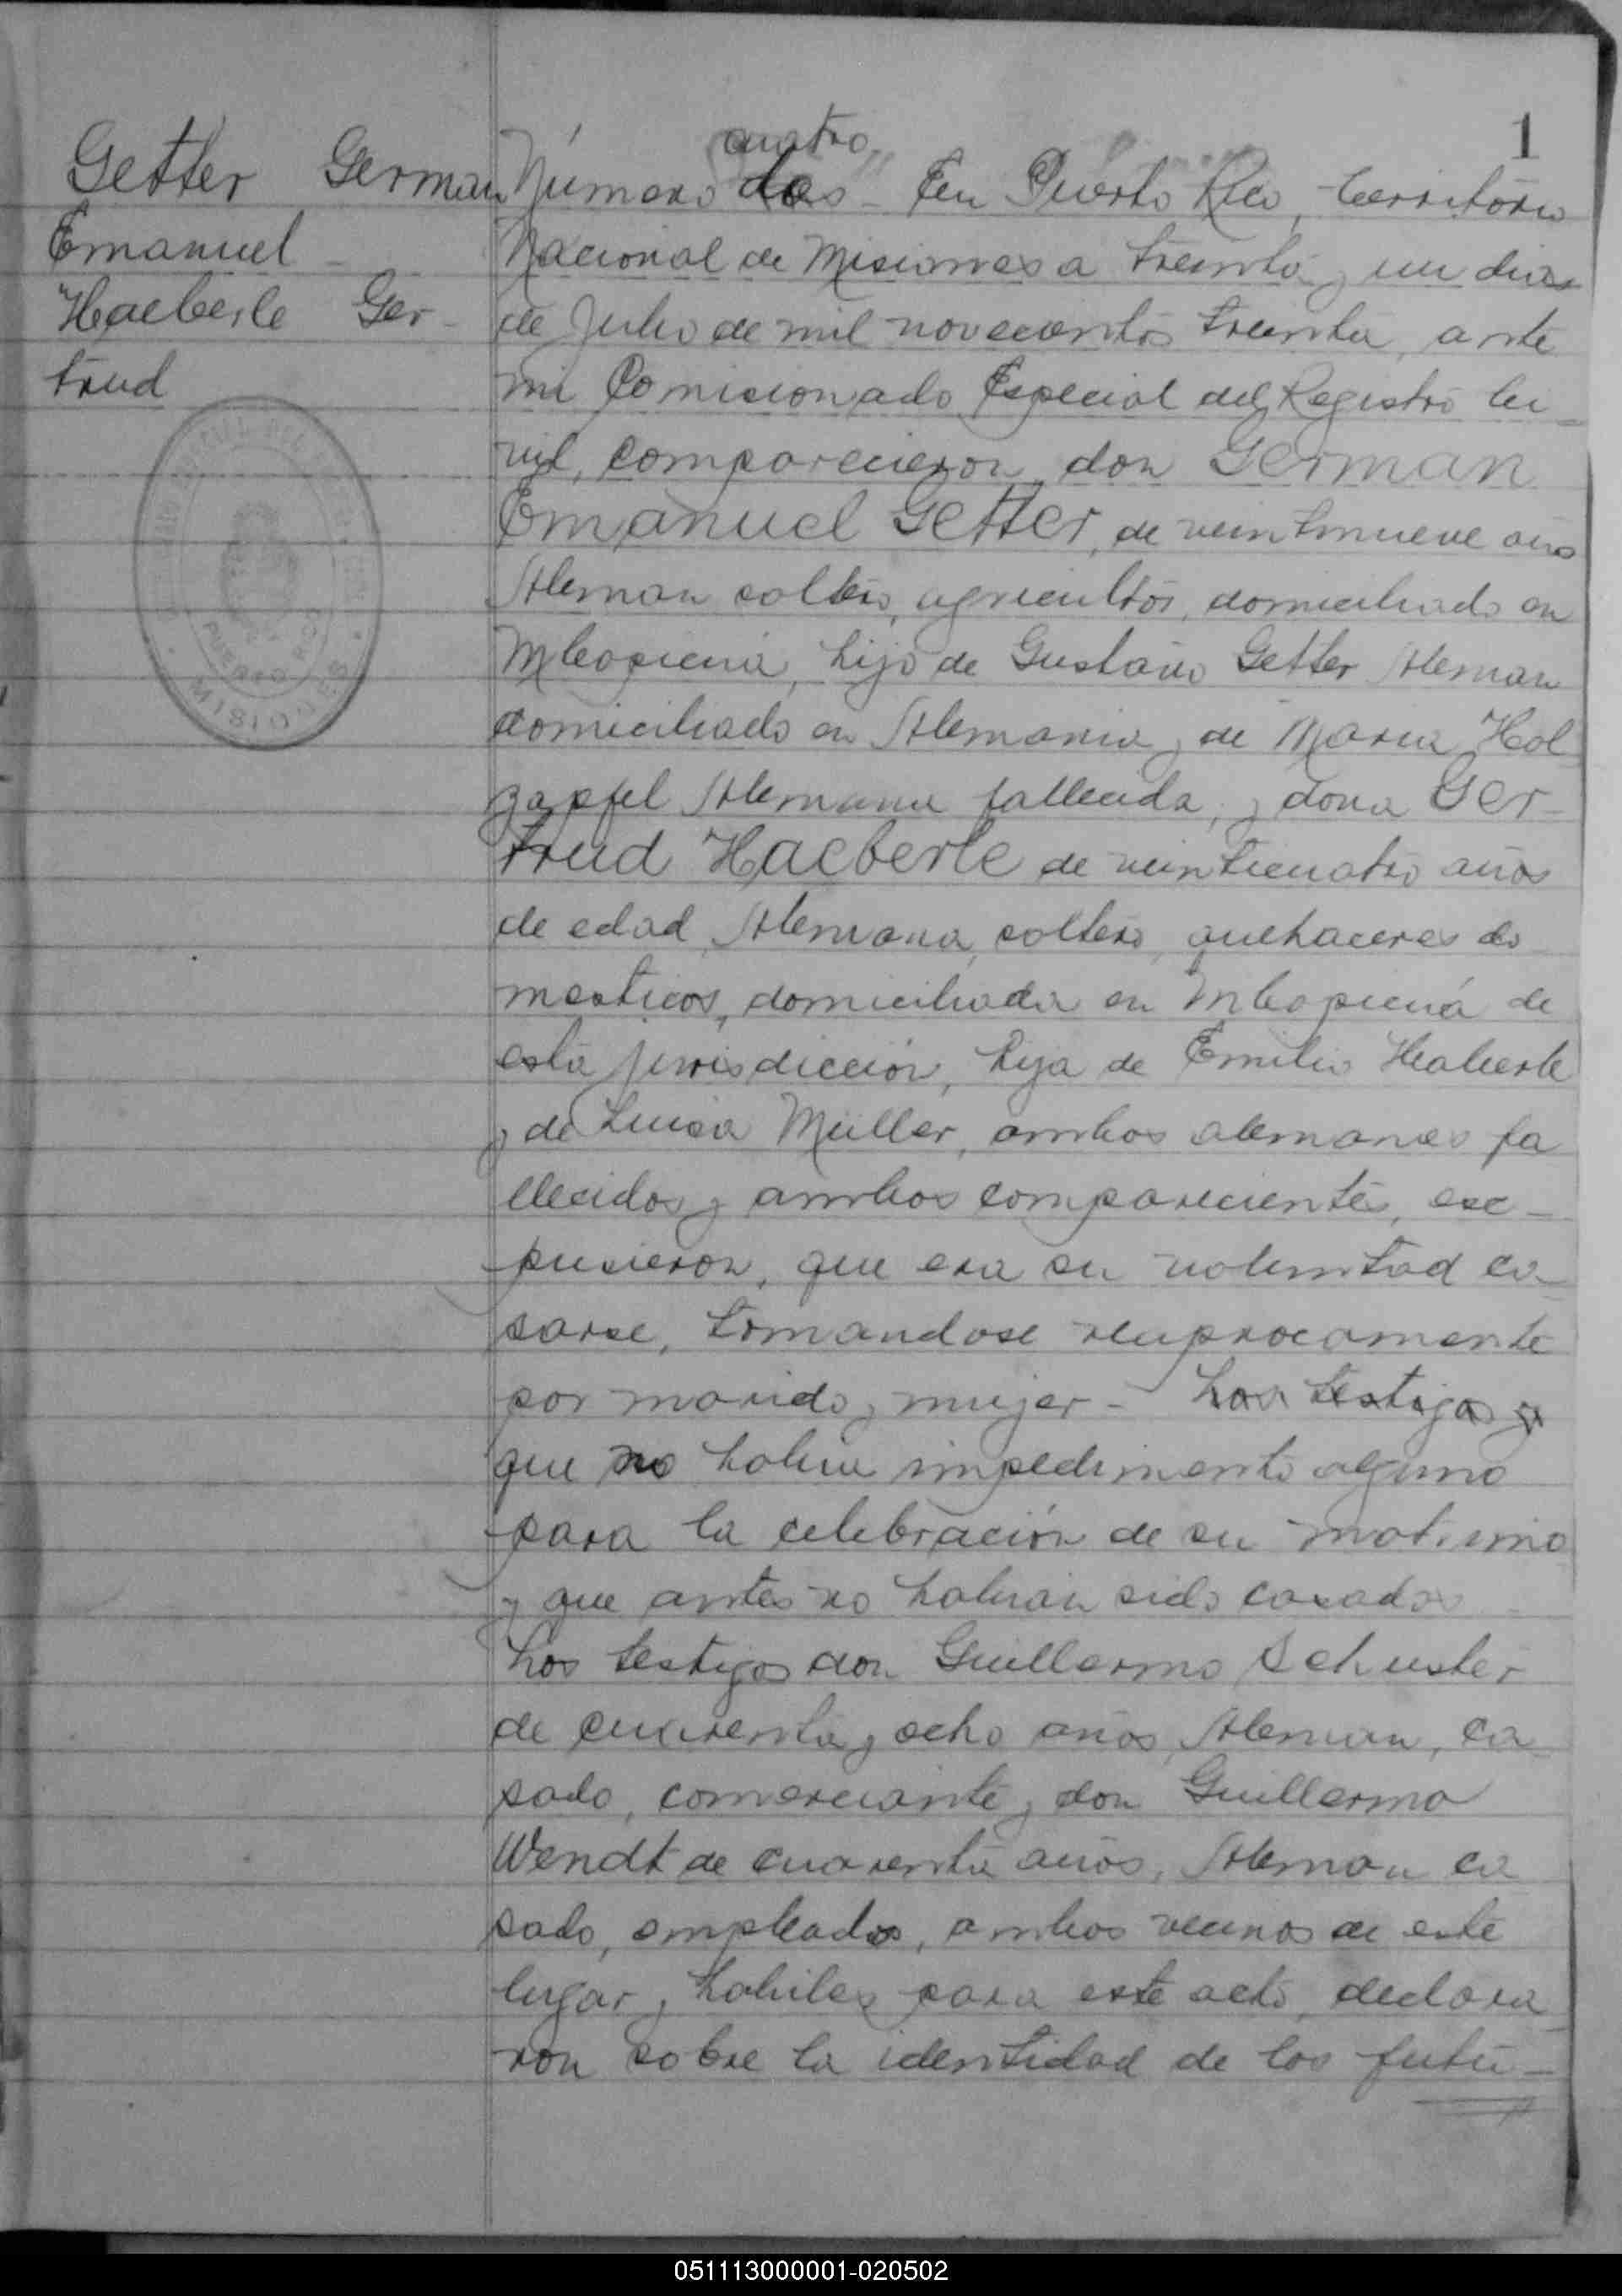 1
Getter German
Emanuel -
Haeberle Ger-
trud
PUERTO RICO
MISIONES
cuatro
Número dos - En Puerto Rico, territorio
Nacional de Misiones a treinta y un dias
de Julio de mil novecientos treinta, ante
mi Comisionado Especial del Registro Ci-
vil, comparecieron don German
Emanuel Getter, de veintinueve años
Aleman soltero, agricultor, domiciliado en
Mbopicuá, hijo de Gustavo Getter Aleman
domiciliado en Alemania y de Maria Hol
zapfel Alemana fallecida, y doña Ger-
trud Haeberle de veinticuatro años
de edad, Alemana, soltera, quehaceres do
mesticos, domiciliada en Mbopicuá de
esta jurisdicción, hija de Emilio Haberle
y de Luisa Müller, ambos alemanes fa
llecidos y ambos comparecientes, ex-
pusieron, que era su voluntad ca-
sarse, tomandose reciprocamente
por marido y mujer - Los testigos y
que no habia impedimento alguno
para la celebración de su matrimo
y que antes no habian sido casados
Los testigos don Guillermo Schuster
de cuarenta y ocho años, Aleman, ca-
sado, comerciante y don Guillermo
Wendt de cuarenta años, Aleman ca
sado, empleado, ambos vecinos de este
lugar, habiles para este acto, declara
ron sobre la identidad de los futu-
051113000001-020502